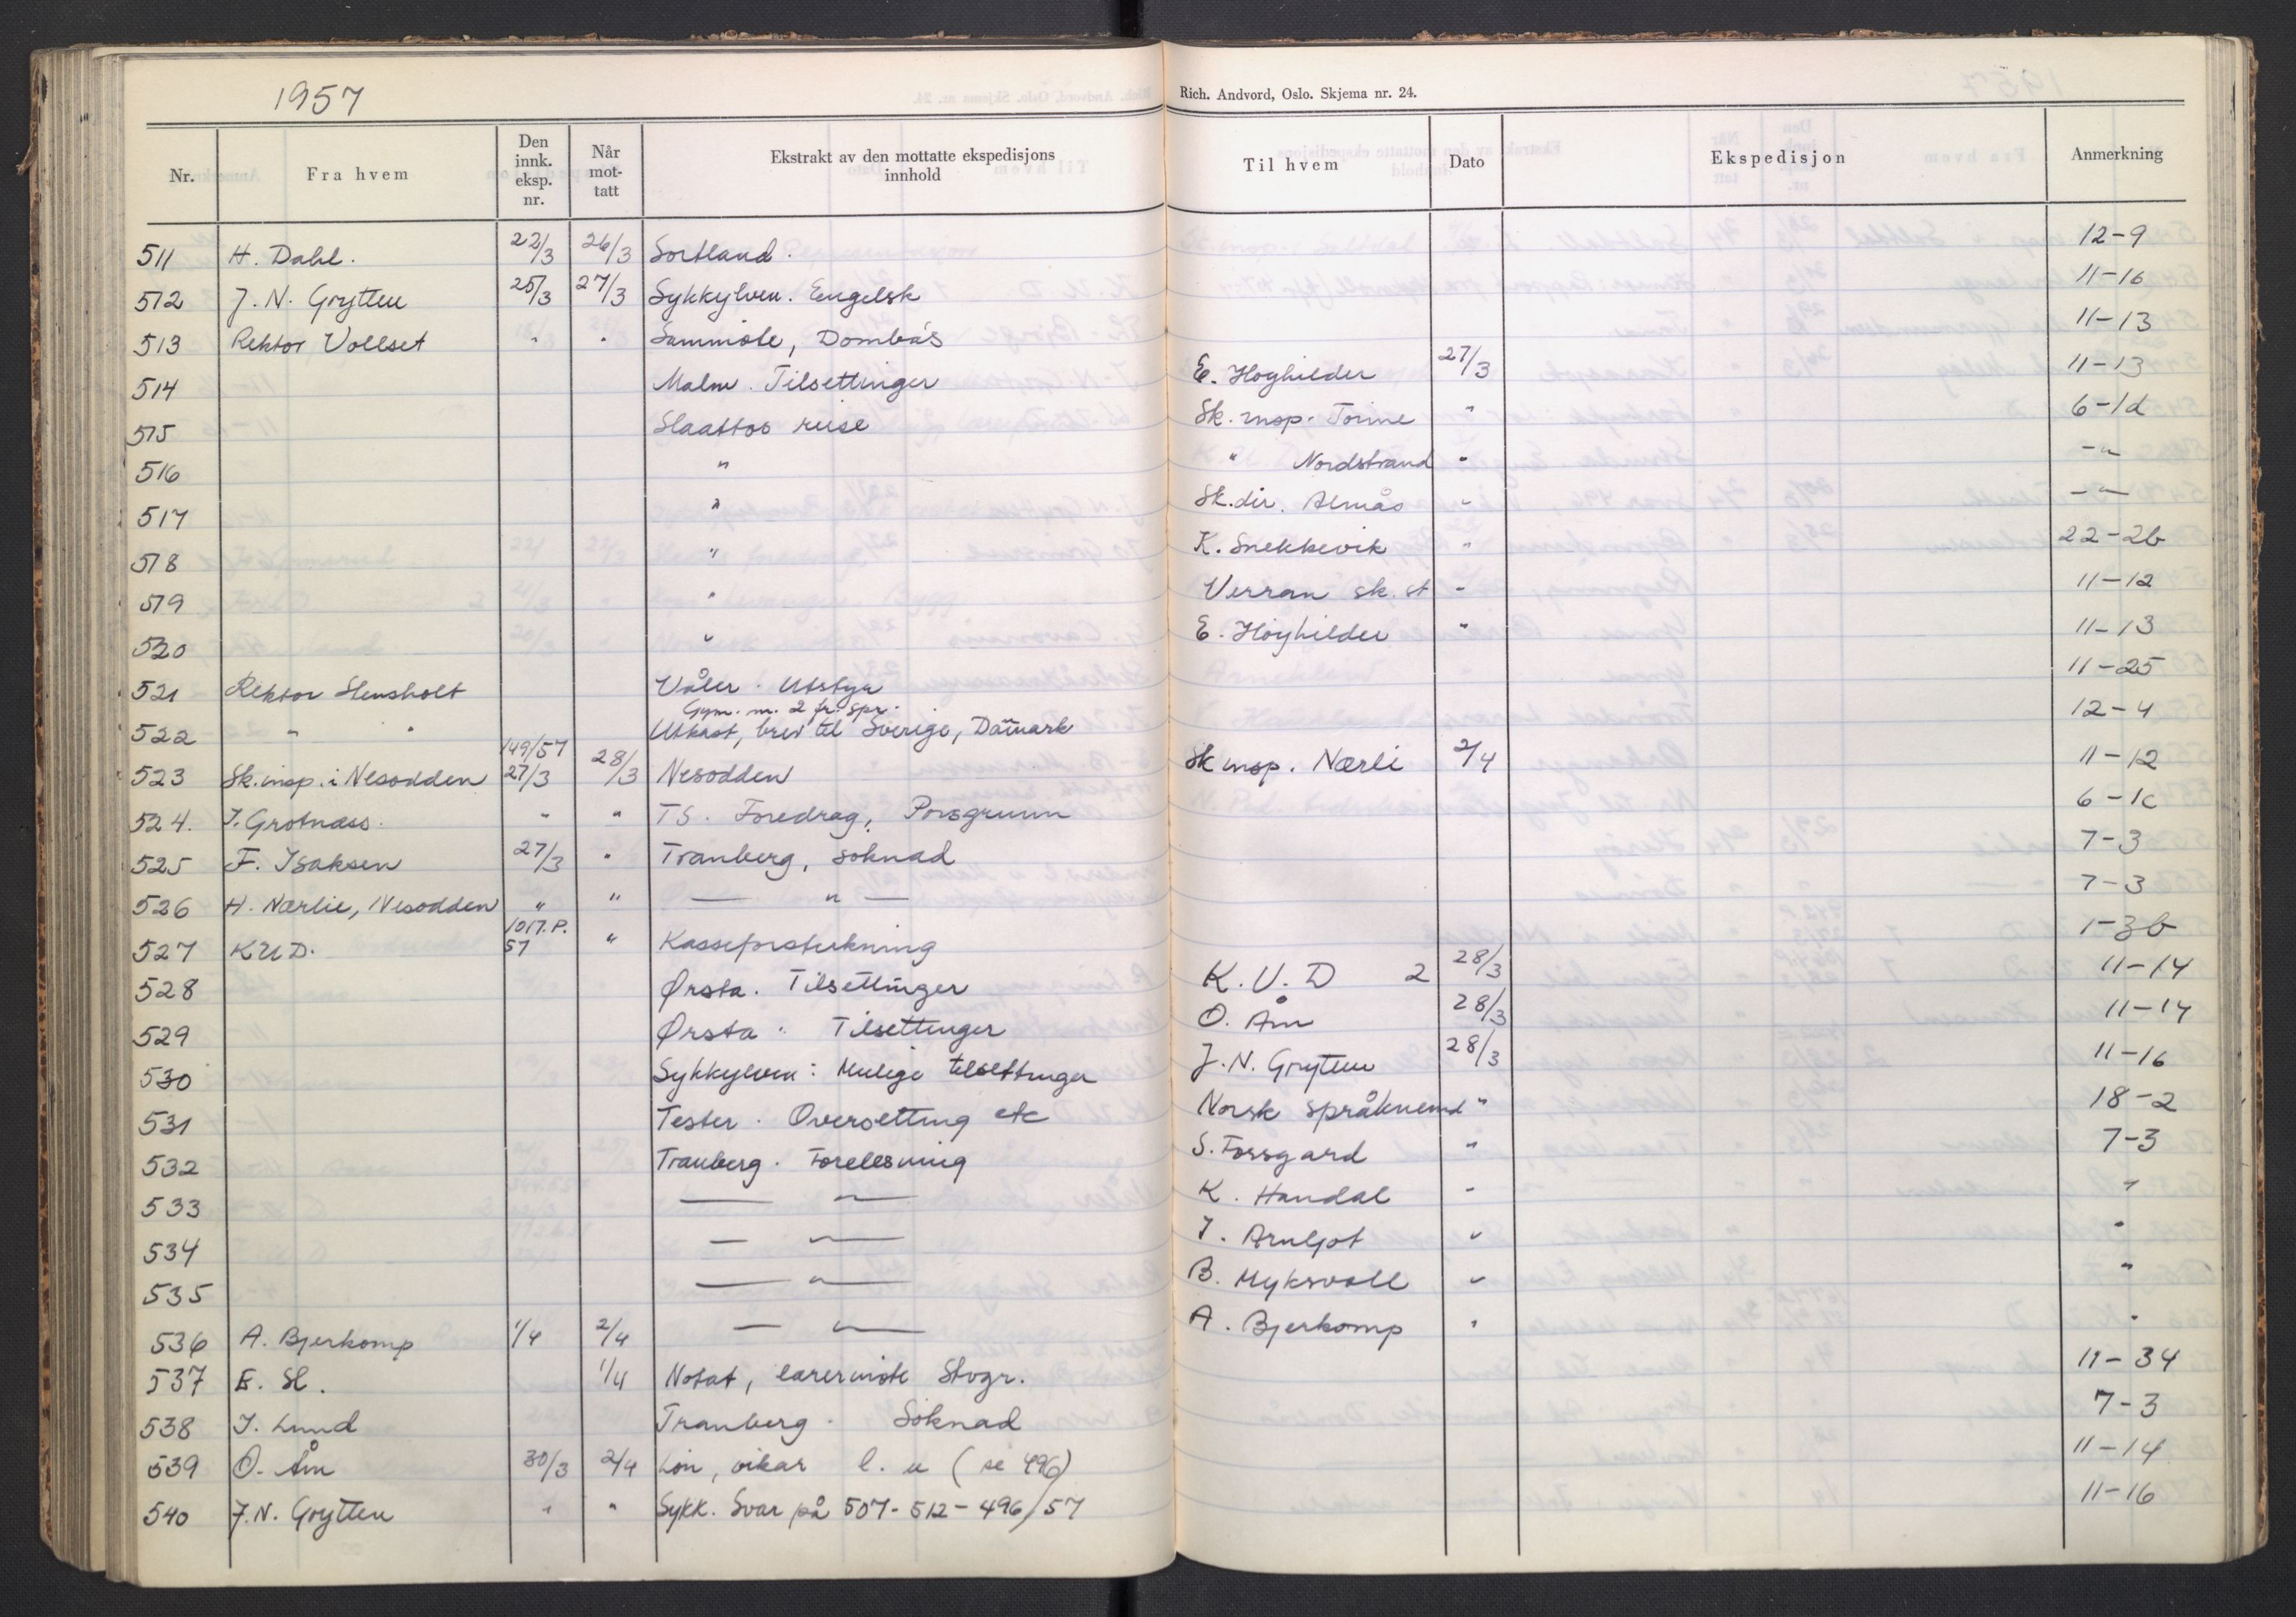 1957
Rich. Andvord, Oslo. Skjema nr. 24.
Nr. Fra hvem Den innk. eksp. nr. Når mot-tatt Ekstrakt av den mottatte ekspedisjons innhold Til hvem Dato Ekspedisjon Anmerkning
511 H. Dahl. 22/3 26/3 Sortland. 12-9
512 J. N. Grytten 25/3 27/3 Sykkylven. Engelsk 11-16
513 Rektor Vollset " " Sammiøte, Dombås 11-13
514 Malm. Tilsettinger E. Høyhilder 27/3 11-13
515 Slaattos reise Sk. insp. Torine " 6-1d
516 " " Nordstrand " -"
517 " Sk. dir. Almås " -"-
518 " K. Snekkevik " 22-2b
519 " Verran sk. st " 11-12
520 " E. Høyhilder " 11-13
521 Rektor Stensholt Våler. Utstyr 11-25
Gym. m. 2 fr. spr.
522 " " Utkast, brev til Sverige, Danmark 12-4
523 Sk. insp. i Nesodden 149/57 27/3 28/3 Nesodden Sk insp. Nærli 2/4 11-12
524. I. Grotnæss. " " TS. Foredrag, Porsgrunn 6-1c
525 F. Isaksen 27/3 " Tranberg, søknad 7-3
526 H. Nærlie, Nesodden " " — " — 7-3
527 KUD. 1017.P. 57 " Kasseforsterkning 1-3b
528 Ørsta. Tilsettinger K. U. D 2 28/3 11-14
529 Ørsta. Tilsettinger O. Åm 28/3 11-14
530 Sykkylven: Mulige tilsettinger J. N. Grytten 28/3 11-16
531 Tester. Oversetting etc Norsk språknemd " 18-2
532 Tranberg. Forelesning S. Forsgard " 7-3
533 — " — K. Handal " "
534 — " — I. Arnljot " "
535 — " — B. Myksvoll " "
536 A. Bjerkomp 1/4 2/4 — " — A. Bjerkomp " "
537 E. Sl. 1/4 Notat, lærermøte Stvgr. 11-34
538 I. Lund Tranberg. Søknad 7-3
539 O. Åm 30/3 2/4 Lønn, vikar l. u (se 496) 11-14
540 J. N. Grytten " " Sykk. Svar på 507-512-496/57 11-16